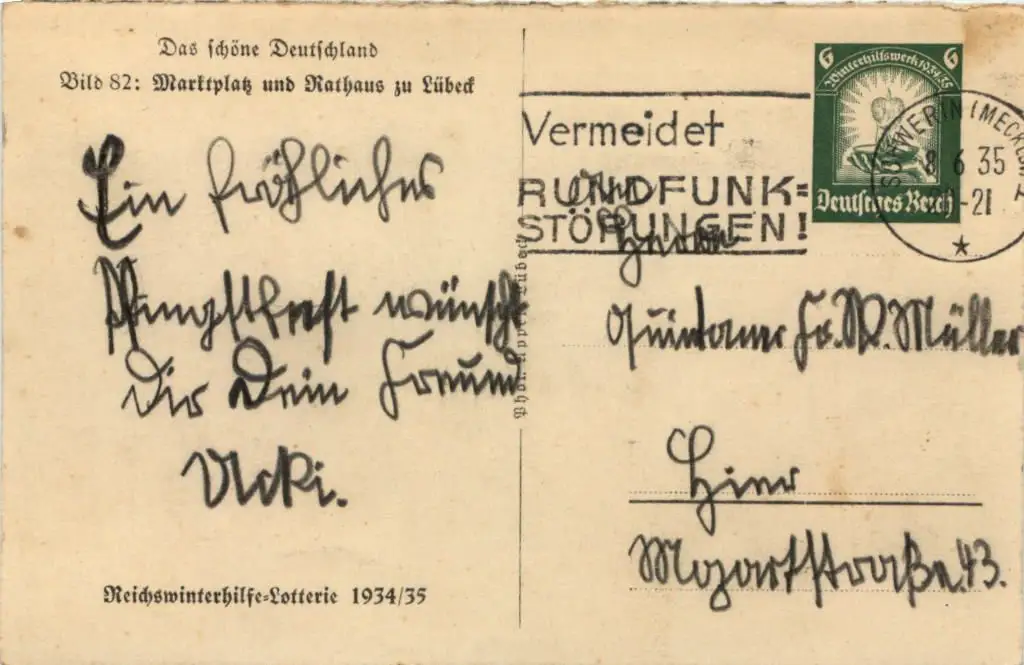 Das schöne Deutschland
Bild 82: Marktplatz und Rathaus zu Lübeck
Ein fröhliches
Pfingstfest wünscht
Dir Dein Freund
Reichswinterhilfe-Lotterie 1934/35
Lübeck
Vermeidet
RUNDFUNK=
STÖRUNGEN!
6 6
Winterhilfswerk 1934/35
Deutsches Reich
SCHWERIN (MECKLB)
8 6 35
20-21
Quintaner Fr. W. Müller
Hier
Mozartstraße 43.